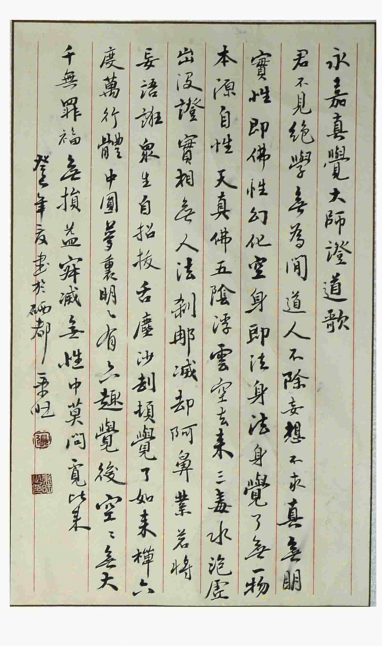 永嘉真覺大師證道歌
君不見絕學無為閒道人不除妄想不求真無明
實性即佛性幻化空身即法身法身覺了無一物
本源自性天真佛五陰浮雲空去來三毒水泡虛
出沒證實相無人法剎那滅却阿鼻業若將
妄語誑眾生自招拔舌塵沙劫頓覺了如来禪六
度萬行體中圓夢裏明〻有六趣覺後空〻無大
千無罪福無損益寂滅無性中莫問覓比来
癸年夏書於硒都